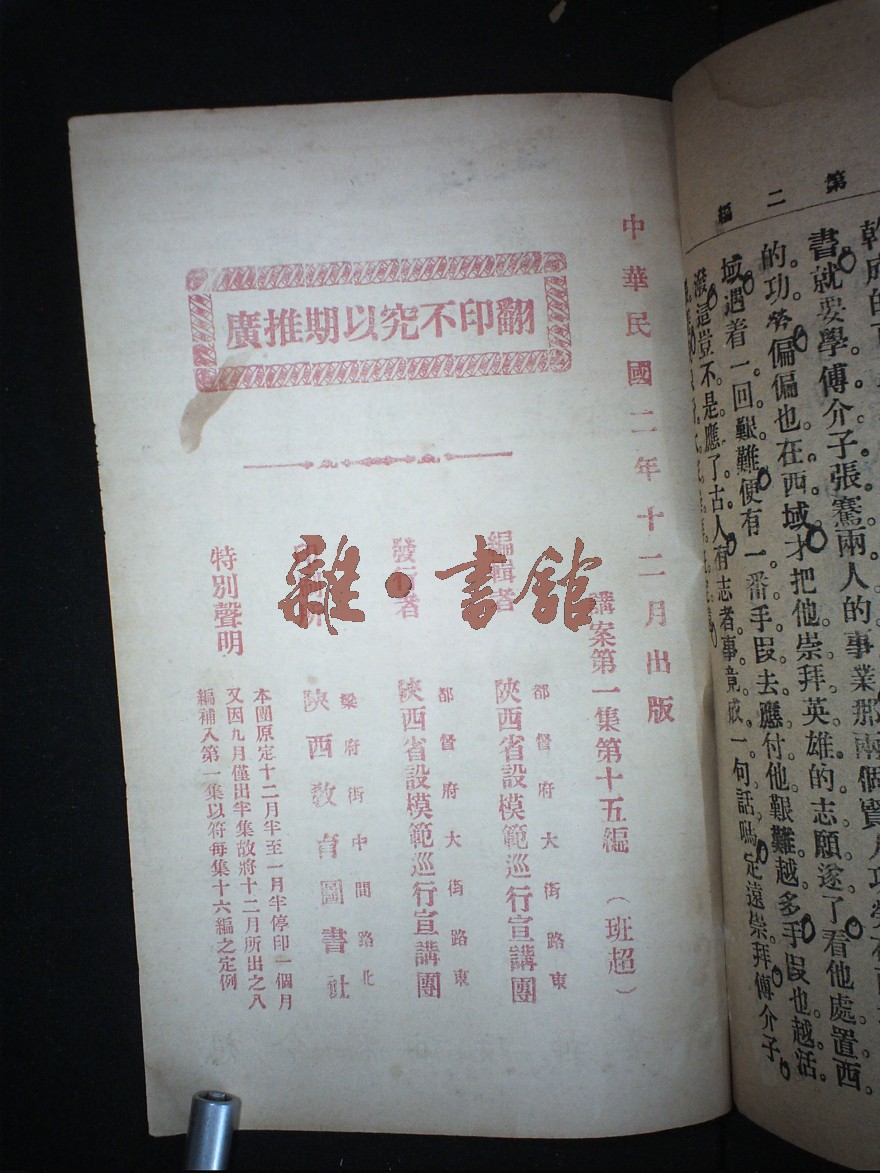 第二編
書就要學傅介子張騫兩人的事業那兩個賢人功勞在西
的功勞偏偏也在西域才把他崇拜英雄的志願遂了看他處置西
域遇着一回艱難便有一番手段去應付他艱難越多手段也越活
潑這豈不是應了古人有志者事竟成一句話嗎定遠崇拜傅介子
中華民國二年十二月出版
講案第一集第十五編（班超）
翻印不究以期推廣
編輯者
都督府大街路東
陝西省設模範巡行宣講團
發行者
都督府大街路東
陝西省設模範巡行宣講團
印刷所
梁府街中間路北
陝西教育圖書社
特別聲明
本團原定十二月半至一月半停印一個月
又因九月僅出半集故將十二月所出之八
編補入第一集以符每集十六編之定例
雜·書館